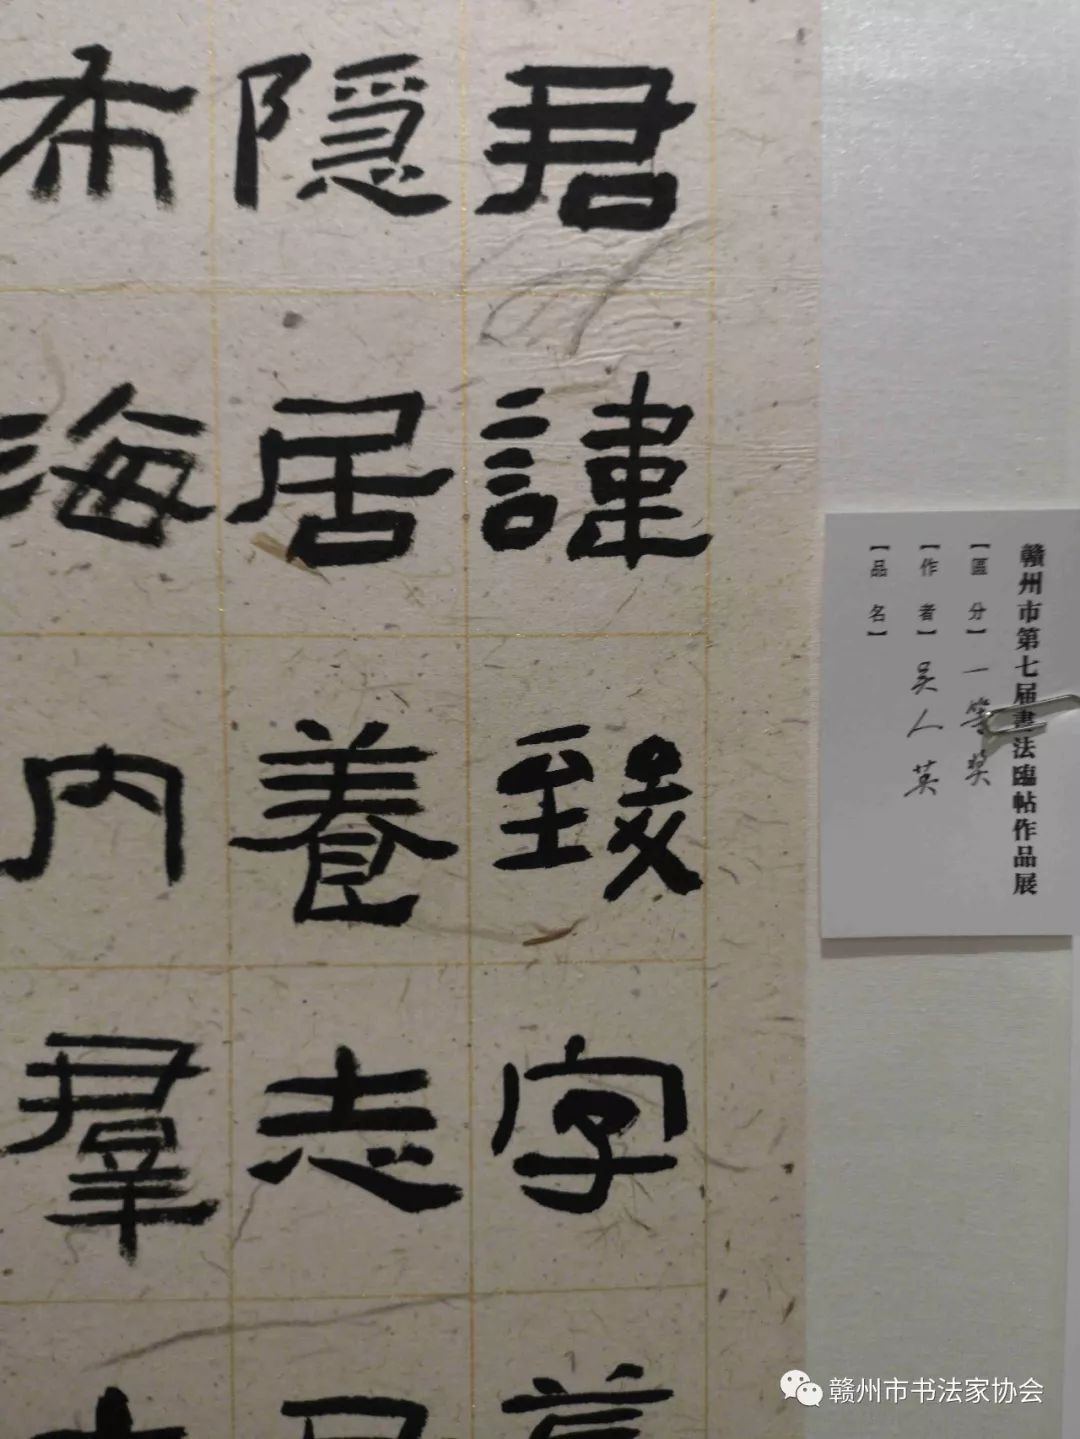 君諱致字
隱居養志
布海内羣
赣州市第七届書法臨帖作品展
【區 分】一等奖
【作 者】吴人英
【品 名】
赣州市书法家协会